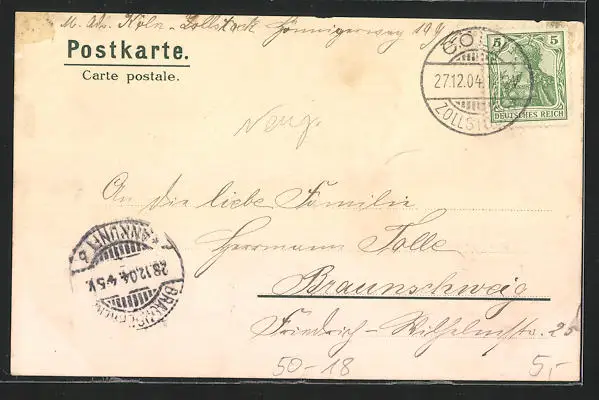 M. Adr. Köln-Zollstock Hönnigerweg 199
Postkarte.
Carte postale.
CÖLN
27.12.04.
ZOLLSTOCK
5 5
DEUTSCHES REICH
An die liebe Familie
Herrmann Tolle
Braunschweig
Friedrich-Wilhelmstr. 25
BRAUNSCHWEIG
28.12.04. 4-5V.
*ANKUNFT b
50-18
5,-